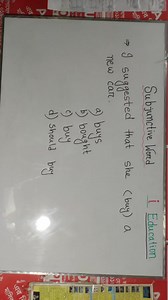 Subjunctive Word
i Education
→ I suggested that she (buy) a
new car.
a) buys
b) bought
c) buy
d) should buy